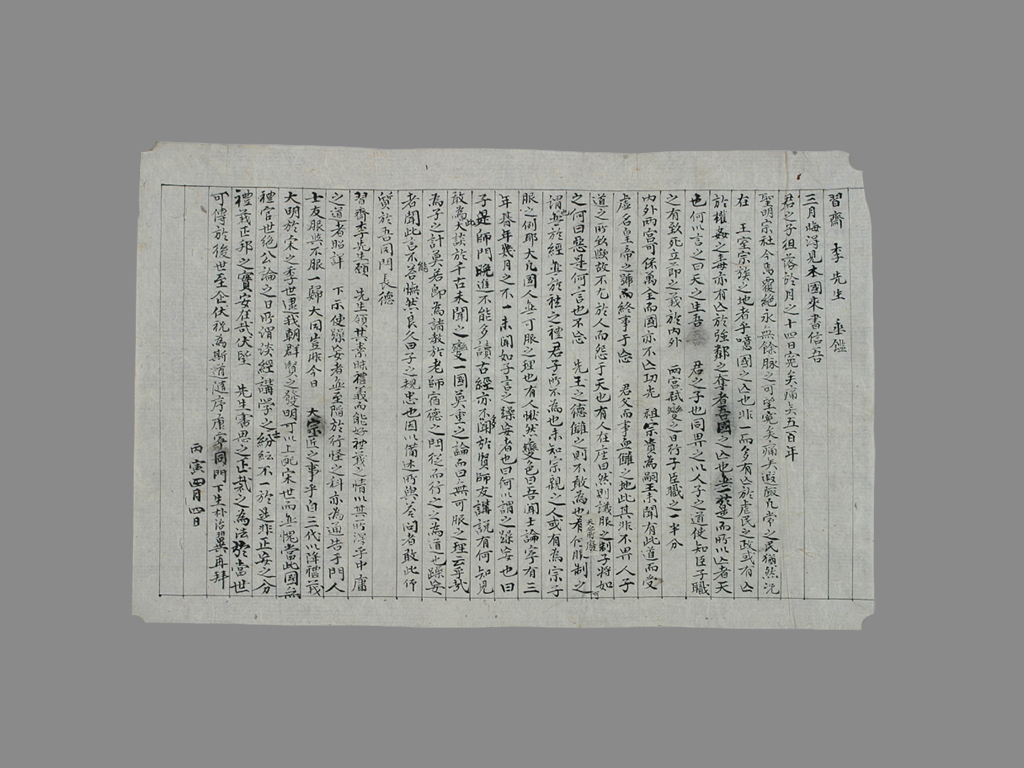 習齋 李 先生 座鑑
三月晦淂見本國來書信吾
君之子徂落於月之十四日冤矣痛矣五百年
聖明宗社今焉覆絶永無餘脉之可望冤矣痛矣遐厥凡常之民猶然況
在 王室宗族之地者乎噫國之亾也非一而多有亾於虐民之政或有亾
於權姦之毒亦有亾於強鄰之奪者吾國之亾也無一於是而所以亾者天
也何以言之曰天之生吾 君之子也同畀之以人子之道使知臣子職
之有致死立節之義於內外 兩宮弒變之日行子臣職之一半分
內外兩宮可保萬全而國亦不亾功光 祖宗貴為嗣王未聞有此道而受
虛名皇帝之號而終事于 君父而事 讎之地此其非不畀人子
道之所致歟故不允於人而怨于天也有人在座曰然則議服之制子將如
之何曰惡是何言也不 先王之德讎之則不敢為也有何服制之
謂無於經無於禮之禮君子所不為也未知宗親之人或有為宗子
服之例耶大凡國人無可服之理也有人愀然變色曰吾聞士論字有三
年朞年幾月之不一未聞如子言之躁妄者也曰何以謂之躁妄也曰
子是師門晩進不能多讀古經亦不聞於賢師友講說有何知見
敢為此大談於千古未聞之變一國莫重之論而曰無可服之理云乎哉
為子之計莫若即為諸敎於老師宿德之門從而行之之為道也躁妄
者聞此言不答憮然良久曰子之規忠也因以備述所與答問者敢此仟
質於吾同門長德
習齋李先生願 先生領其素昧禮義而能好禮義之情以其所淂乎中庸
之道者昭詳 下示使躁妄者無至陷於行怪之科亦為通告于門人
士友服與不服一歸大同豈非今日 大宗匠之事乎自三代以降禮義
大明於宋之季世逮我朝群賢之發明可以上配宋世而無愧當此國無
禮官世絶公論之日所謂談經講學之士紛紜不一於是非正妄之分
禮義正邦之實安在哉伏望 先生審思之正裁之為法於當世
可傳於後世至企伏祝為斯道隨序康寧同門下生朴治翼再拜
丙寅四月四日